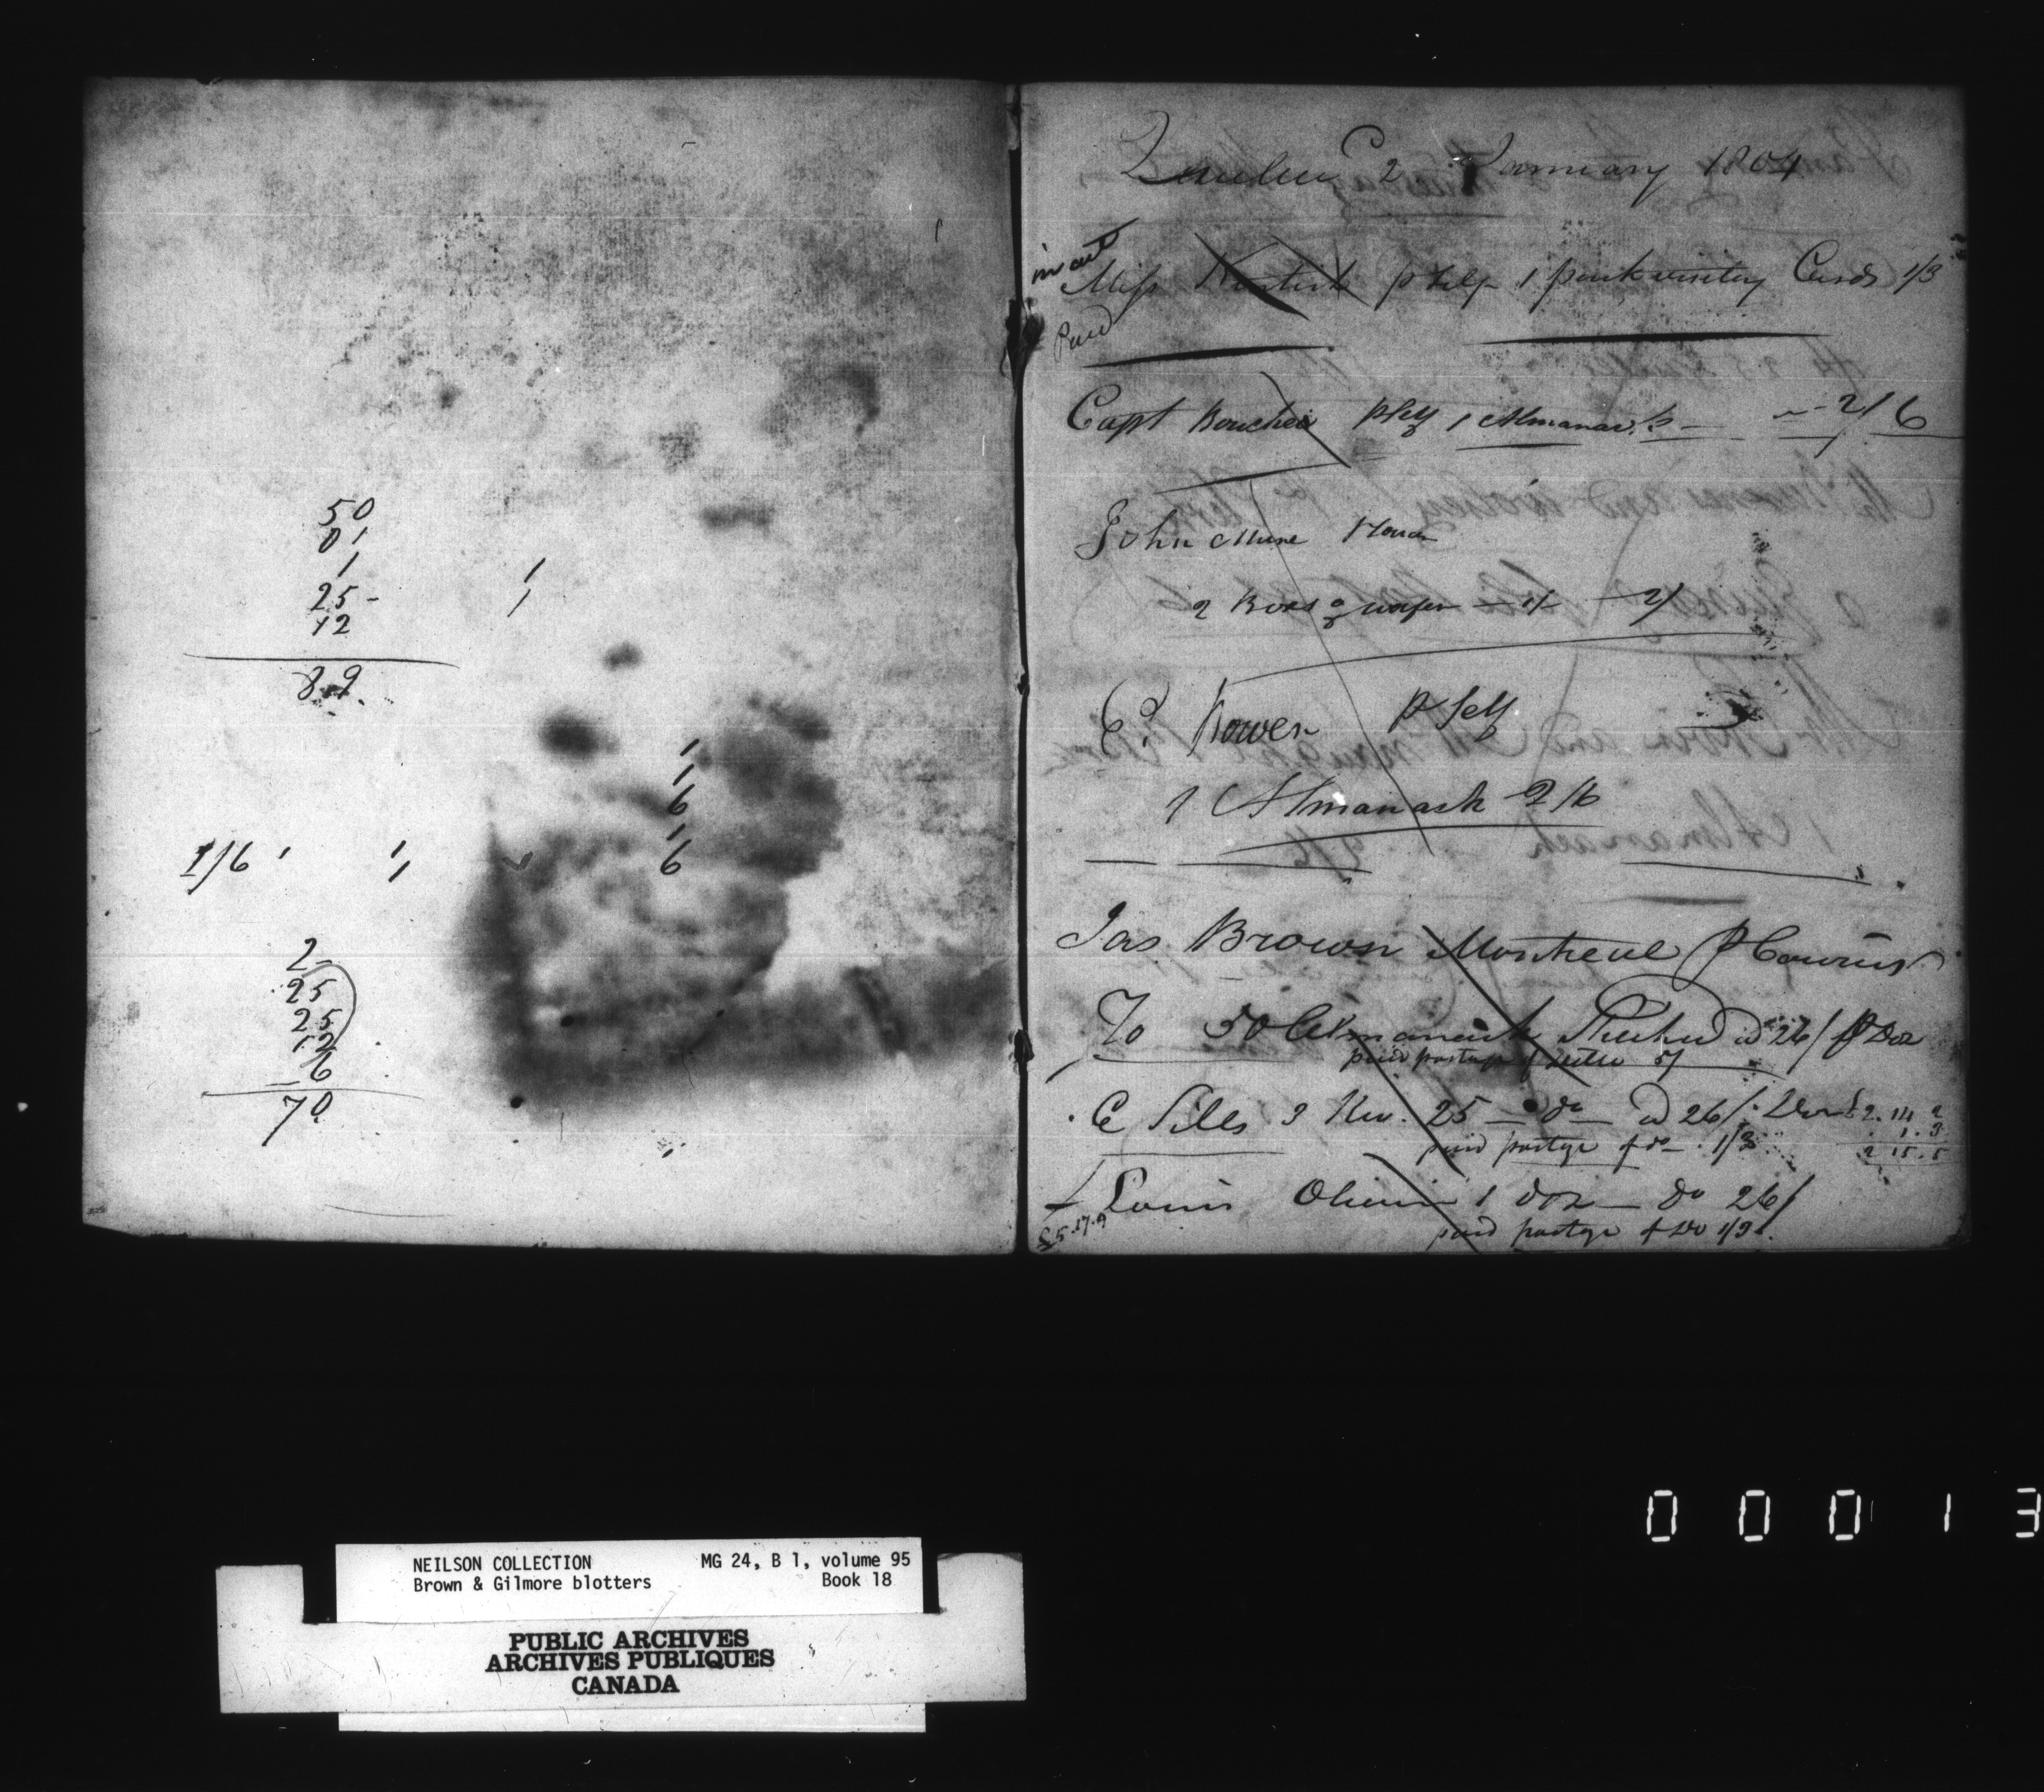 50
01
1
25 -
12
89.
1
1
1
1
6
1
6
1/6
1
1
2-
25
25
12
6
70
Quebec 2 January 1804
in art
Miss p self 1 pack visiting Cards 1/3
Paid
Capt Bouchea p self 1 Almanac 2/6
John Mure
2 Boxes wafer 1/ 2/
E. Bowen p self
1 Almanack 2/6
Jas. Brown Montreal p Courier
To 50 Almanack @ 26/ p Doz
paid postage of Letter 5/
C Sills 3 Riv. 25 — do — @ 26/ 2. 14. 2
paid postage of do 1/3 1. 3
2 15. 5
Louis 1 doz — do 26/
£5.17.9
paid postage of Do 1/3
0 0 0 1 3
NEILSON COLLECTION MG 24, B 1, volume 95
Brown & Gilmore blotters Book 18
PUBLIC ARCHIVES
ARCHIVES PUBLIQUES
CANADA